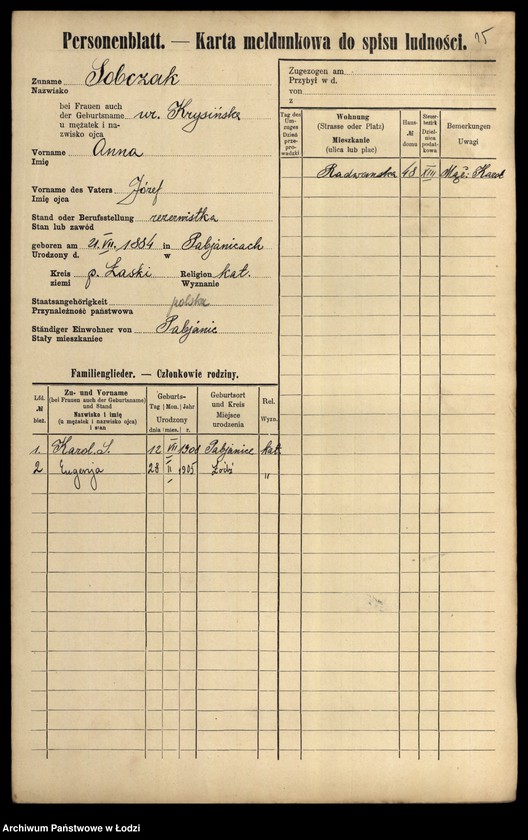 Personenblatt. — Karta meldunkowa do spisu ludności. 15
Zuname Sobczak
Nazwisko
bei Frauen auch
der Geburtsname ur. Krysińska
u mężatek i na-
zwisko ojca
Vorname Anna
Imię
Vorname des Vaters Józef
Imię ojca
Stand oder Berufsstellung rezerwistka
Stan lub zawód
geboren am 21. VII. 1884 in Pabjanicach
Urodzony d. w
Kreis p. Łaski Religion kat.
ziemi Wyznanie
Staatsangehörigkeit polska
Przynależność państwowa
Ständiger Einwohner von Pabjanic
Stały mieszkaniec
Familienglieder. — Członkowie rodziny.
Lfd. № bież.
Zu- und Vorname
(bei Frauen auch der Geburtsname)
und Stand
Nazwisko i imię
(u mężatek i nazwisko ojca)
i stan
Geburts-
Tag Mon. Jahr
Urodzony
dnia mies. r.
Geburtsort
und Kreis
Miejsce
urodzenia
Rel.
Wyzn.
1. Karol. S. 12 VII 1908 Pabjanice kat.
2 Eugenja 28 II 1905 Łódź "
Zugezogen am
Przybył w d.
von
z
Tag des Um-
zuges
Dzień
prze-
prowadzki
Wohnung
(Strasse oder Platz)
Mieszkanie
(ulica lub plac)
Haus-
№
domu
Steuer-
bezirk
Dziel-
nica
podat-
kowa
Bemerkungen
Uwagi
Radwanska 48 XIII Mąż: Karol
Archiwum Państwowe w Łodzi